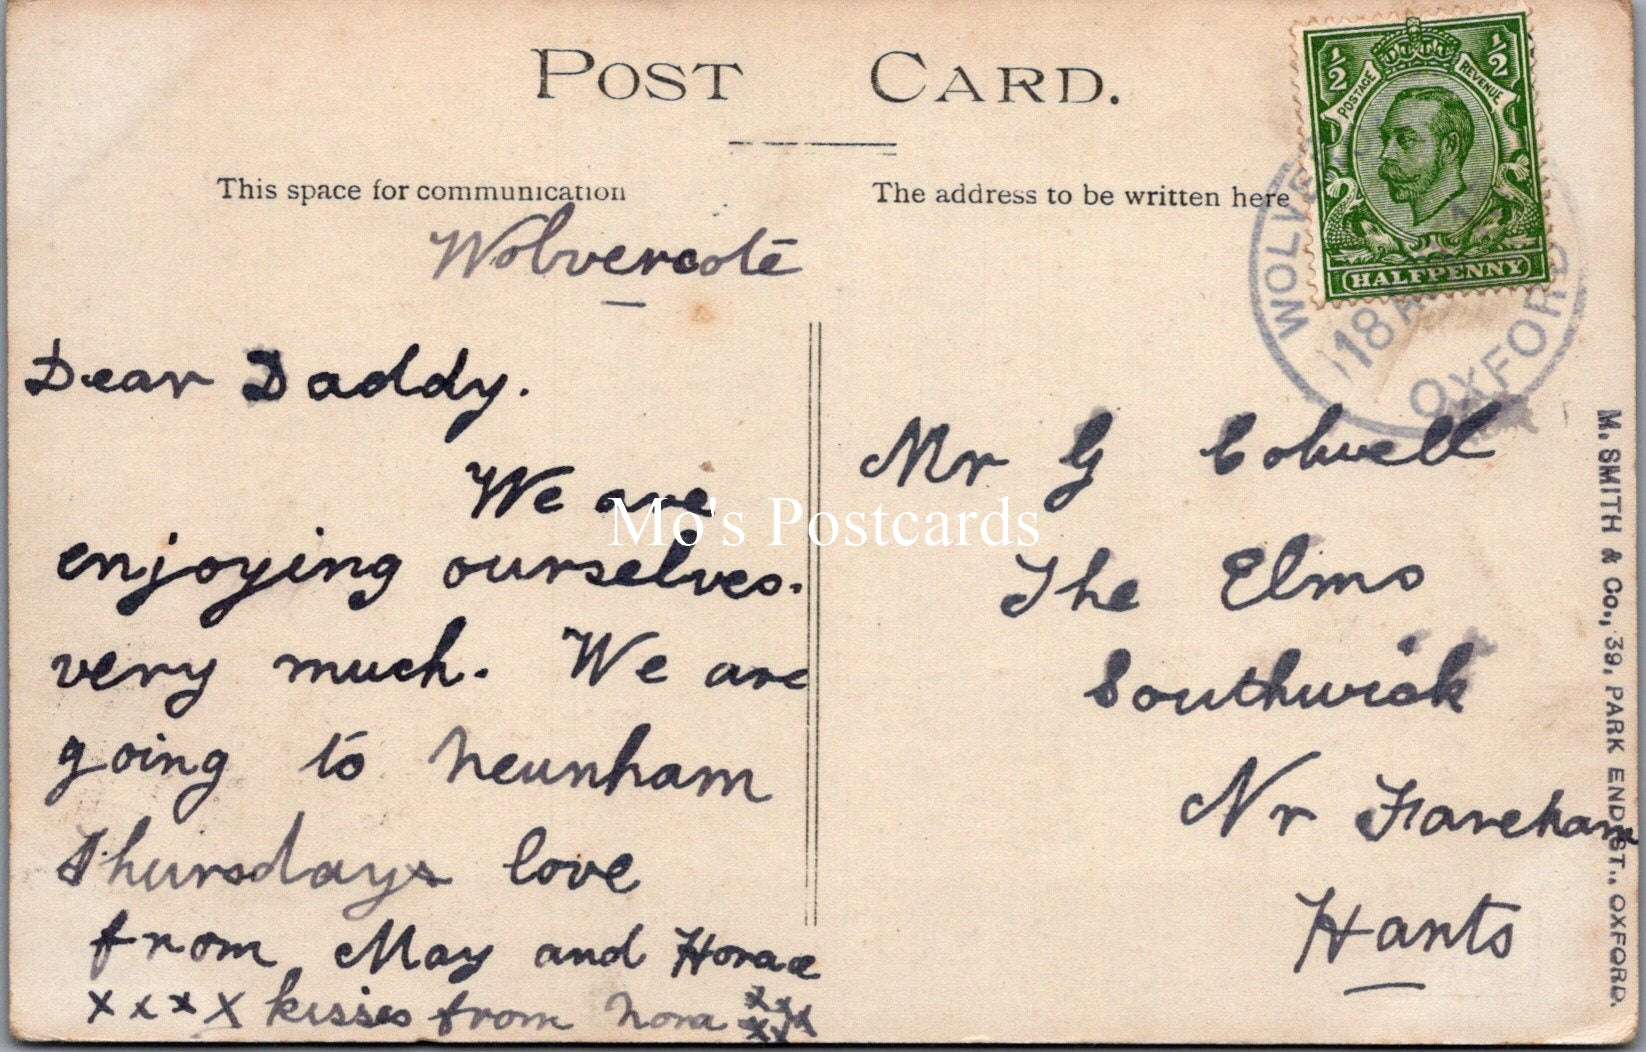 POST CARD.
This space for communication
The address to be written here
Wolvercote
Dear Daddy.
We are
enjoying ourselves.
very much. We are
going to Neunham
Thursdays love
from May and Horace
x x x x kisses from Nora x x x x x x
Mr G Colwell
The Elms
Southwick
Nr Fareham
Hants
1/2 1/2
POSTAGE REVENUE
HALFPENNY
18 A
OXFORD
M. SMITH & CO., 39, PARK END ST., OXFORD.
Mo's Postcards